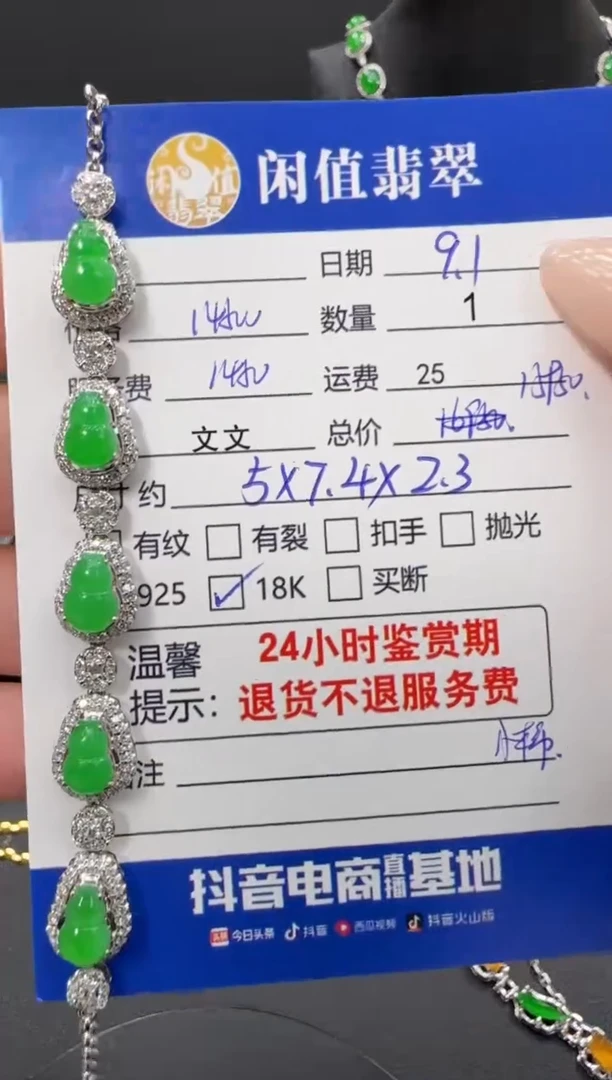 闲值翡翠
闲值
翡翠
日期 9.1
数量 1
费 1450 运费 25
文文 总价
尺寸约 5X7.4X2.3
有纹 有裂 扣手 抛光
925 ✓ 18K 买断
温馨 24小时鉴赏期
提示: 退货不退服务费
注
抖音电商直播基地
头条 今日头条 抖音 西瓜视频 抖音火山版